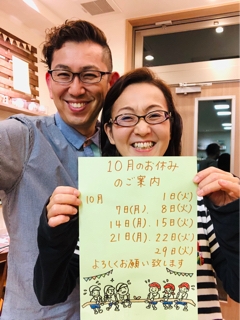 10月のお休み
のご案内
10月 1日(火)
7日(月)、8日(火)
14日(月)、15日(火)
21日(月)、22日(火)
29日(火)
よろしくお願い致します